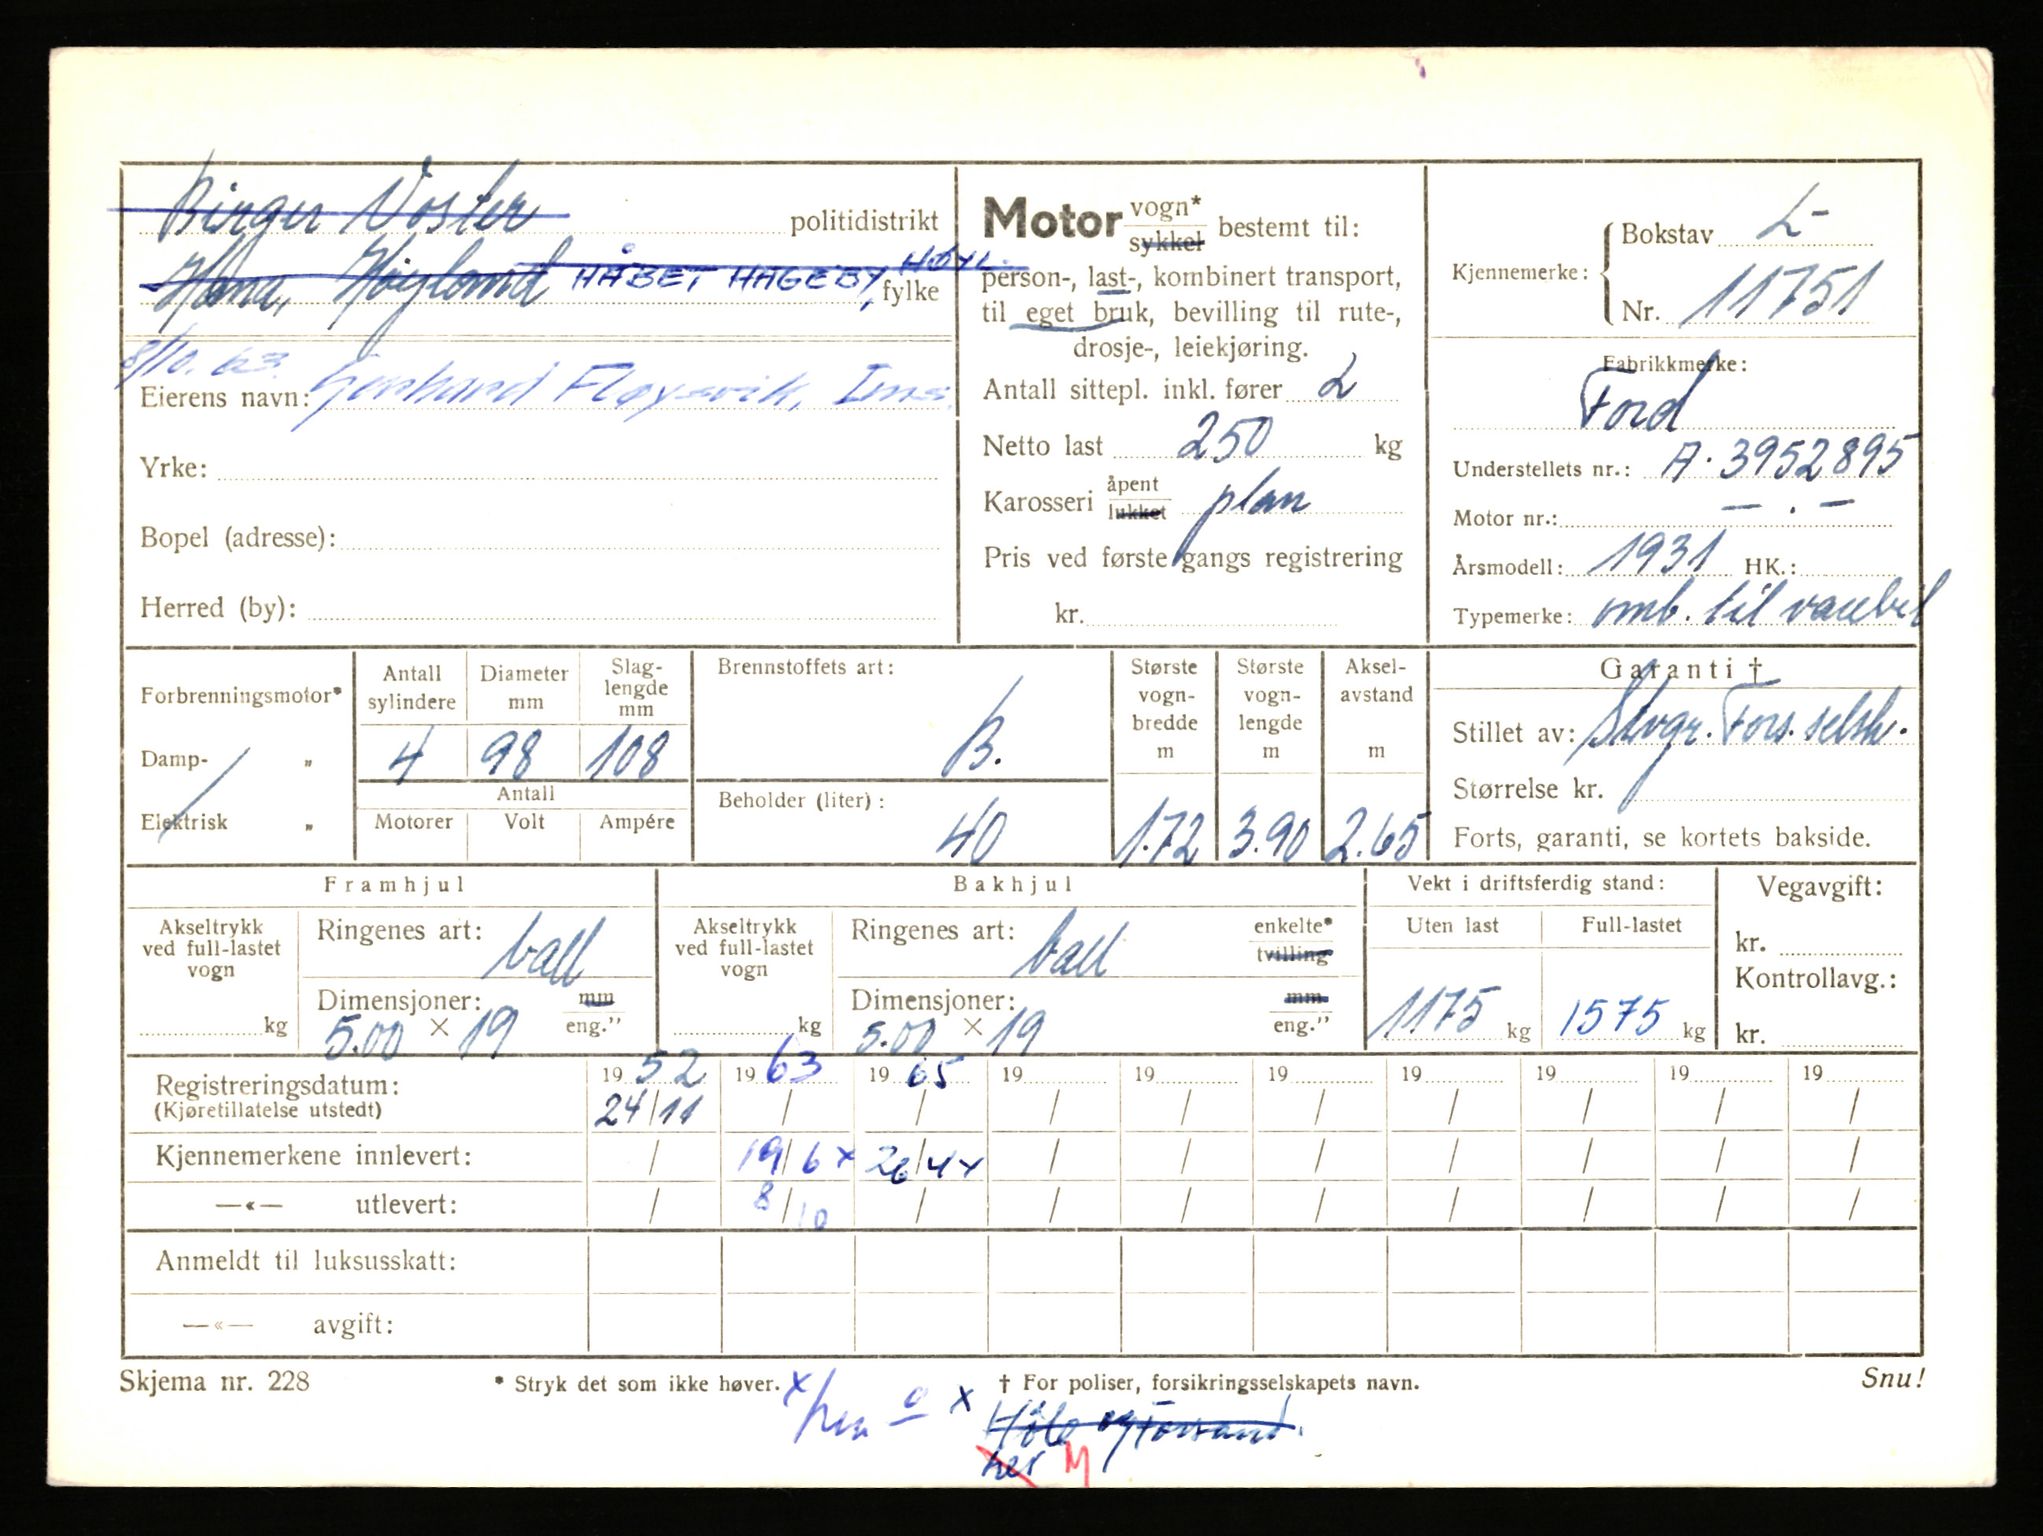 Birger Voster politidistrikt
Hana, Høyland HÅBET HAGEBY, HØYL. fylke
8/10.63.
Eierens navn: Fløysvik, Ims.
Yrke:
Bopel (adresse):
Herred (by):
Motor vogn* sykkel bestemt til:
person-, last-, kombinert transport,
til eget bruk, bevilling til rute-,
drosje-, leiekjøring.
Antall sittepl. inkl. fører 2
Netto last 250 kg
Karosseri åpent lukket plan
Pris ved første gangs registrering
kr.
Kjennemerke: Bokstav L-
Nr. 11751
Fabrikkmerke:
Ford
Understellets nr.: A. 3952895
Motor nr.: — . —
Årsmodell: 1931 HK.:
Typemerke: omb. til varebil
Forbrenningsmotor*
Damp- „
Elektrisk „
Antall sylindere 4
Diameter mm 98
Slag-lengde mm 108
Antall
Motorer Volt Ampére
Brennstoffets art:
B.
Beholder (liter):
40
Største vogn-bredde m 1.72
Største vogn-lengde m 3.90
Aksel-avstand m 2.65
Garanti †
Stillet av: Stvgr. Fors. selsk.
Størrelse kr.
Forts, garanti, se kortets bakside.
Framhjul
Akseltrykk ved full-lastet vogn
kg
Ringenes art: ball
Dimensjoner: mm
5.00 × 19 eng.”
Bakhjul
Akseltrykk ved full-lastet vogn
kg
Ringenes art: ball enkelte* tvilling
Dimensjoner: mm
5.00 × 19 eng.”
Vekt i driftsferdig stand:
Uten last Full-lastet
1175 kg 1575 kg
Vegavgift:
kr.
Kontrollavg.:
kr.
Registreringsdatum: 1952 1963 1965 19 19 19 19 19 19 19
(Kjøretillatelse utstedt) 24/11 / / / / / / / / /
Kjennemerkene innlevert: / 19/6 x 26/4 x / / / / / / /
—«— utlevert: / 8/10 / / / / / / / /
Anmeldt til luksusskatt:
—«— avgift:
Skjema nr. 228 * Stryk det som ikke høver. † For poliser, forsikringsselskapets navn. Snu!
x x Høle og Forsand.
her M